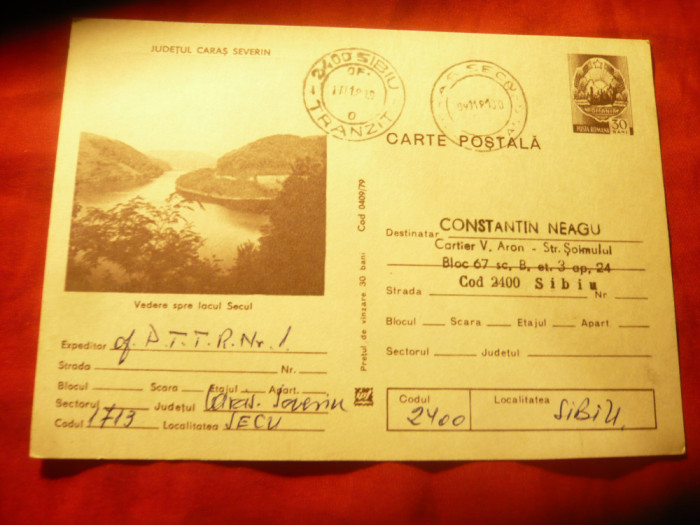 JUDEȚUL CARAȘ SEVERIN
2400 SIBIU
OF.
TRANZIT
SECU
POSTA ROMANA
30
BANI
CARTE POȘTALĂ
Vedere spre lacul Secul
Expeditor of. P.T.T.R. Nr. 1.
Strada Nr.
Blocul Scara Etajul Apart.
Sectorul Județul Caraș-Severin
Codul 1713 Localitatea SECU
Prețul de vînzare 30 bani Cod 0409/79
Destinatar CONSTANTIN NEAGU
Cartier V. Aron - Str. Șoimului
Bloc 67 sc. B. et. 3 ap. 24
Cod 2400 Sibiu
Strada Nr.
Blocul Scara Etajul Apart.
Sectorul Județul
Codul Localitatea
2400 SIBIU.